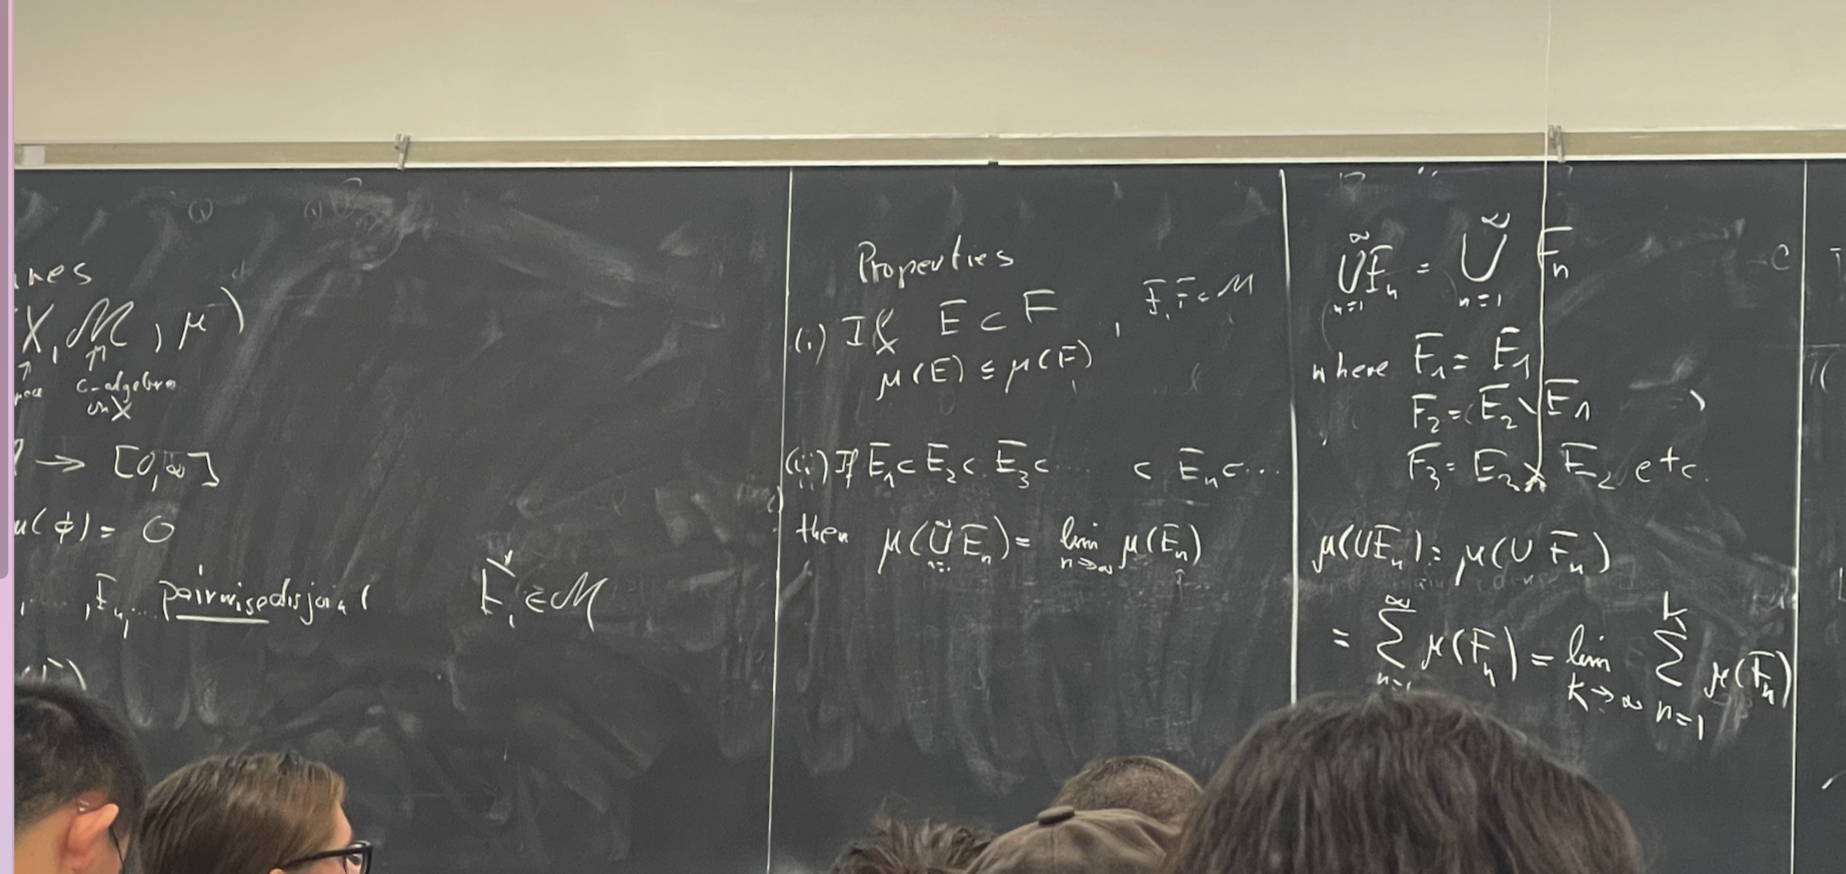 (X, M, μ)
σ-algebra
on X
→ [0,∞]
μ(ϕ) = 0
pairwise disjoint E_i ∈ M
Properties
(i.) If E ⊂ F , E, F ∈ M
μ(E) ≤ μ(F)
(ii) If E₁ ⊂ E₂ ⊂ E₃ ⊂ ... ⊂ E_n ⊂ ...
then μ(∪ E_n) = lim_{n→∞} μ(E_n)
∪_{n=1}^∞ E_n = ∪_{n=1}^∞ F_n
where F₁ = E₁
F₂ = E₂ \ E₁
F₃ = E₃ \ E₂ etc.
μ(∪E_n) = μ(∪ F_n)
= ∑_{n=1}^∞ μ(F_n) = lim_{k→∞} ∑_{n=1}^k μ(F_n)